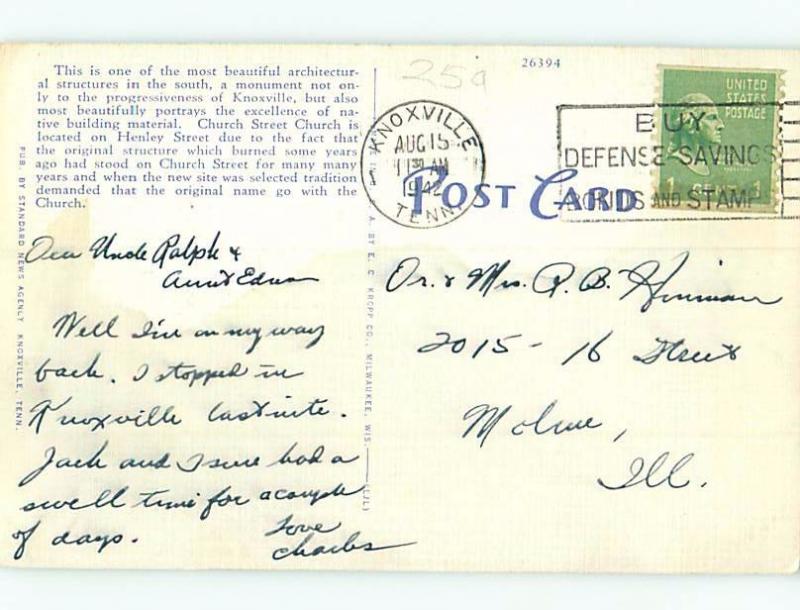 This is one of the most beautiful architectur-
al structures in the south, a monument not on-
ly to the progressiveness of Knoxville, but also
most beautifully portrays the excellence of na-
tive building material. Church Street Church is
located on Henley Street due to the fact that
the original structure which burned some years
ago had stood on Church Street for many many
years and when the new site was selected tradition
demanded that the original name go with the
Church.
PUB. BY STANDARD NEWS AGENCY KNOXVILLE, TENN.
Dear Uncle Ralph &
Aunt Edna
Well I'm on my way
back. I stopped in
Knoxville last nite.
Jack and I sure had a
swell time for a couple
of days.
Love
Charles
BY E. C. KROPP CO., MILWAUKEE, WIS.
25¢
26394
KNOXVILLE
AUG 15
11 30 AM
1942
TENN.
BUY
DEFENSE SAVINGS
BONDS AND STAMPS
UNITED
STATES
POSTAGE
1 CENT 1
POST CARD
Dr. & Mrs. R. B. Hinman
2015 - 16 Street
Moline,
Ill.